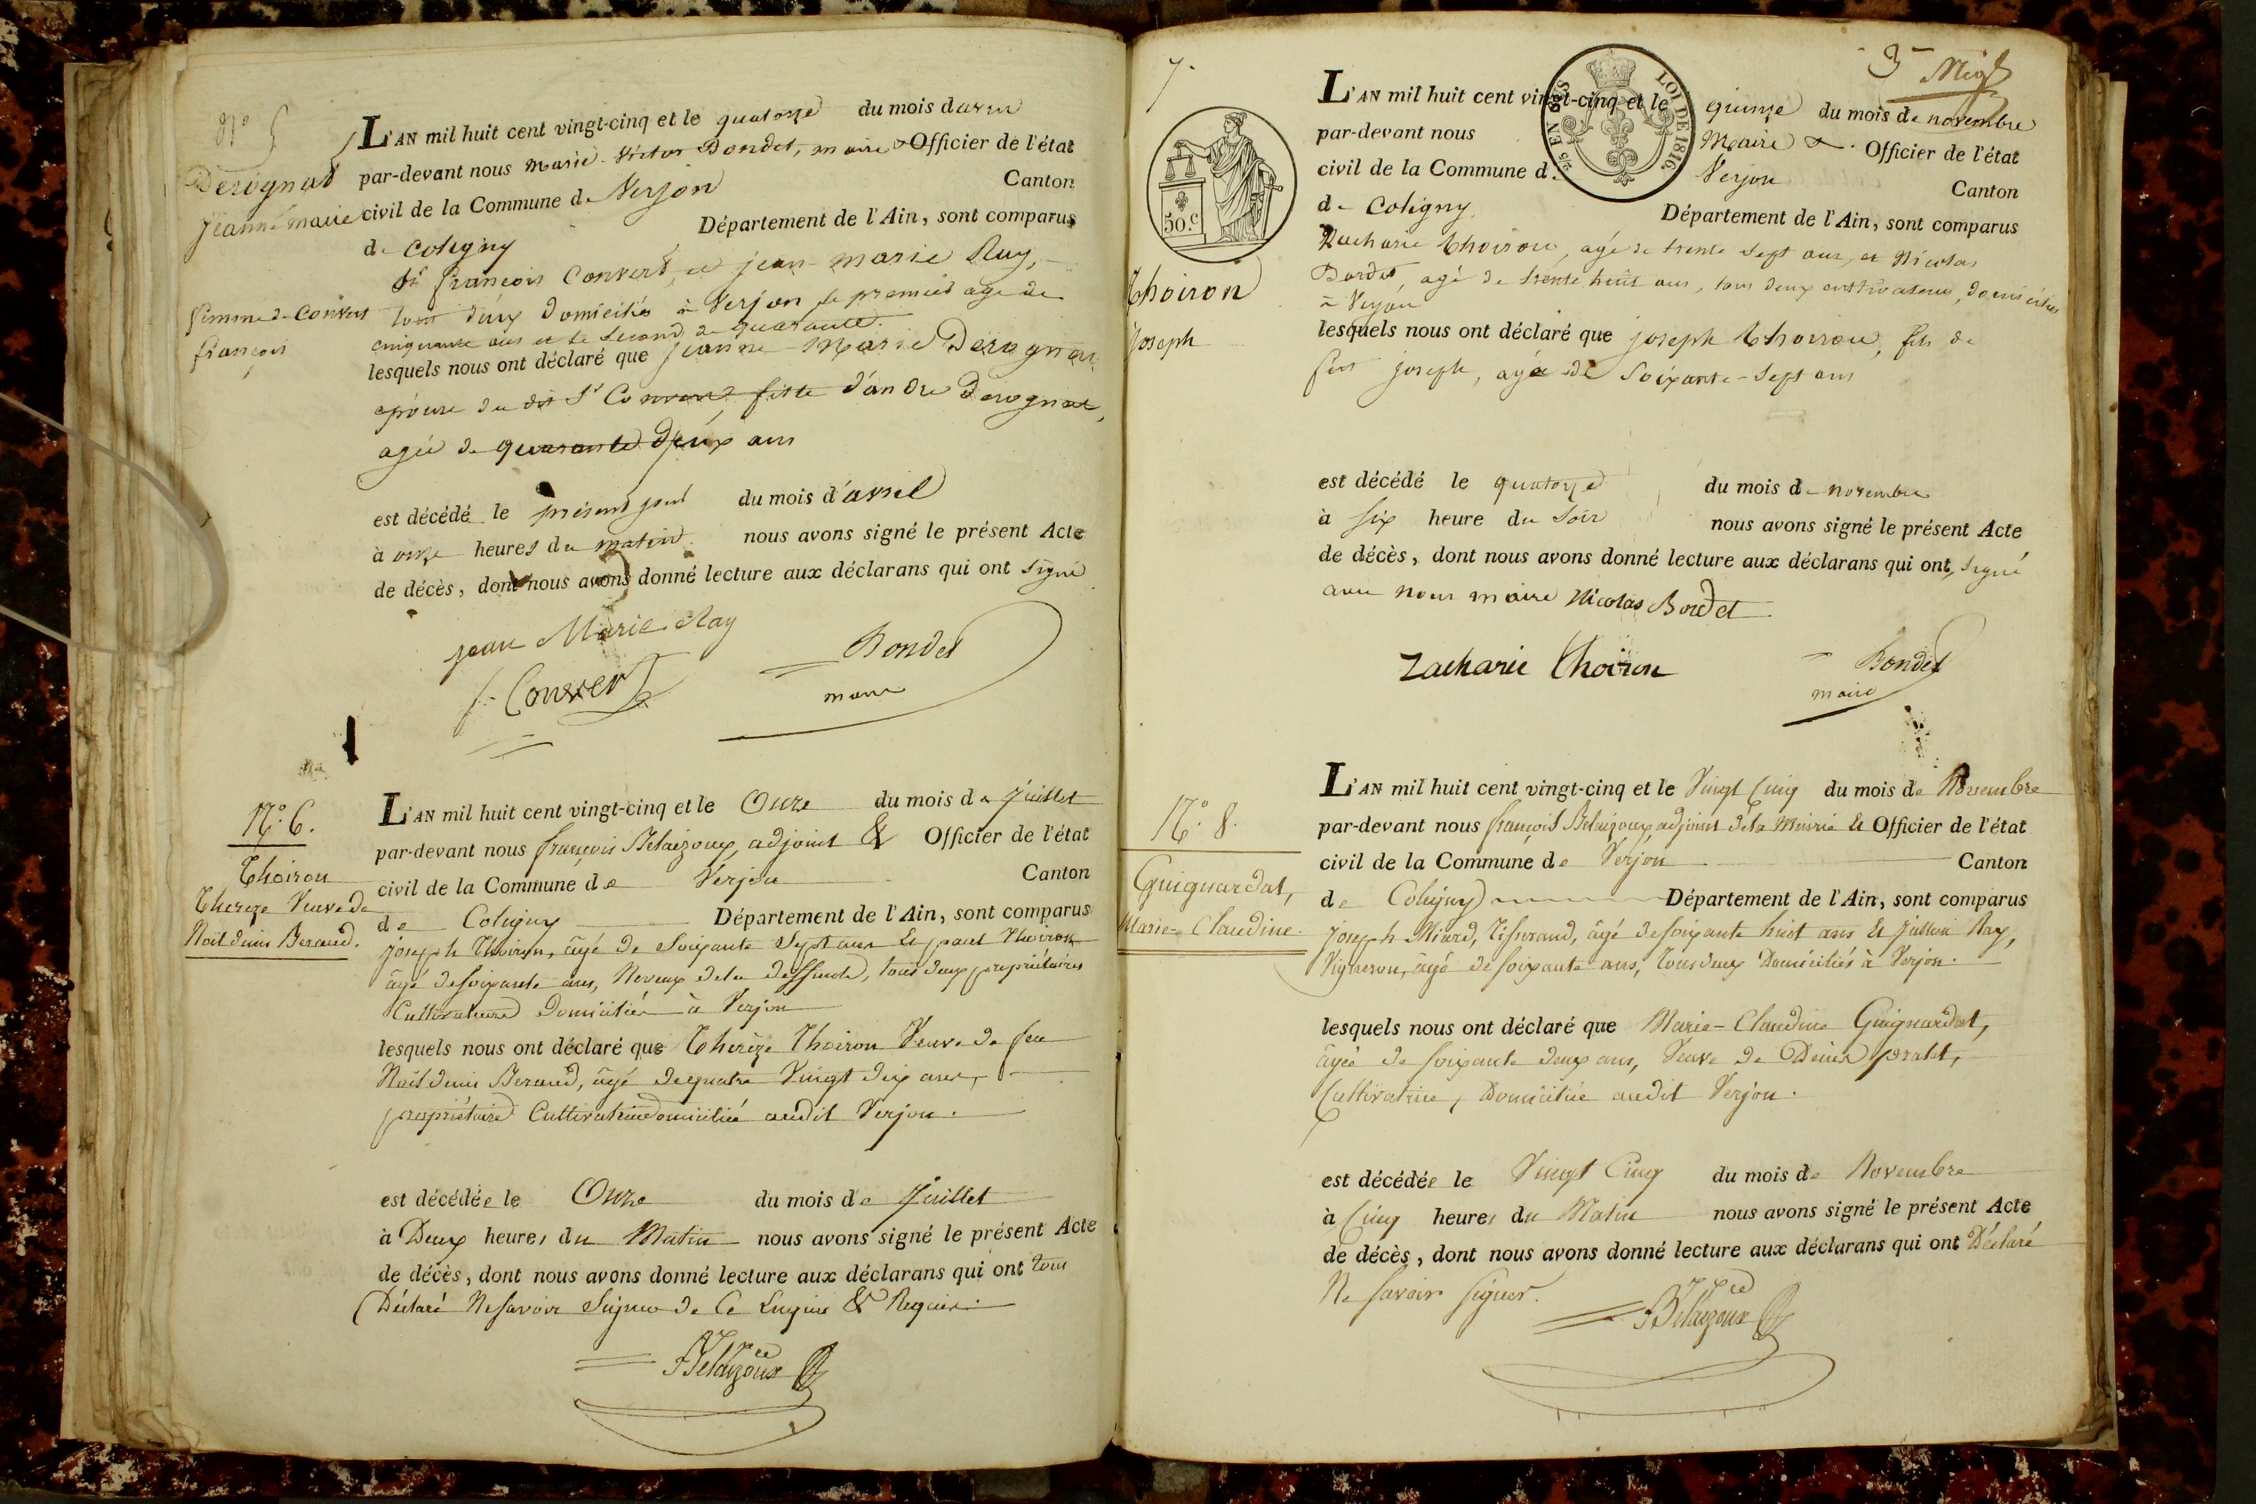 N° 5
Derognat
jeanne marie
femme de Convert
françois
L'AN mil huit cent vingt-cinq et le quatorze du mois d'avril
par-devant nous Marie-Victor Bondet, maire & Officier de l'état
civil de la Commune de Verjon Canton
de Coligny Département de l'Ain, sont comparus
Sr françois Convert, et jean-marie Ray,
tous deux domiciliés à Verjon, le premier agé de
cinquante ans et le second de quarante.
lesquels nous ont déclaré que jeanne-Marie Derognat
épouse du dit Sr Convert fille d'andré Derognat,
agée de quarante deux ans
est décédé le présent jour du mois d'avril
à onze heures du matin. nous avons signé le présent Acte
de décès, dont nous avons donné lecture aux déclarans qui ont signé
jean Marie Ray
f. Convert
Bondet
maire
N°. 6.
Thoiron
Thereze Veuve de
Noël denis Beraud.
L'AN mil huit cent vingt-cinq et le Onze du mois de Juillet
par-devant nous françois Belaizoux, adjoint & Officier de l'état
civil de la Commune de Verjon Canton
de Coligny Département de l'Ain, sont comparus
Joseph Thoiron, âgé de Soixante Sept ans Et paul Thoiron
âgé de soixante ans, Neveux de la deffunte, tous deux propriétaires
Cultivateurs Domiciliés à Verjon
lesquels nous ont déclaré que Thérèze Thoiron Veuve de feu
Noël denis Beraud, âgé de quatre Vingt dix ans,
propriétaire Cultivatrice domiciliée audit Verjon.
est décédée le Onze du mois de Juillet
à Deux heures du Matin nous avons signé le présent Acte
de décès, dont nous avons donné lecture aux déclarans qui ont tous
Déclaré Ne savoir Signer de Ce Enquis & Requis.
Belaizoux
7.
50.c
Thoiron
Joseph
25 EN SUS
LOI DE 1816
L'AN mil huit cent vingt-cinq et le quinze du mois de novembre
par-devant nous Maire & Officier de l'état
civil de la Commune de Verjon Canton
de Coligny Département de l'Ain, sont comparus
Zacharie Thoiron, agé de trente sept ans, et Nicolas
Bordet, agé de trente huit ans, tous deux cultivateurs, domiciliés
à Verjon
lesquels nous ont déclaré que joseph Thoiron, fils de
feu joseph, agé de Soixante-Sept ans
est décédé le quatorze du mois de novembre
à six heure du Soir nous avons signé le présent Acte
de décès, dont nous avons donné lecture aux déclarans qui ont signé
avec nous maire Nicolas Bordet
Zacharie Thoiron
Bondet
maire
N°. 8.
Guignardat,
Marie-Claudine.
L'AN mil huit cent vingt-cinq et le Vingt Cinq du mois de Novembre
par-devant nous françois Belaizoux, adjoint de la Mairie Et Officier de l'état
civil de la Commune de Verjon Canton
de Coligny Département de l'Ain, sont comparus
Joseph Miard, Tisserand, âgé de soixante huit ans Et Julien Ray,
Vigneron, âgé de soixante ans, tous deux Domiciliés à Verjon.
lesquels nous ont déclaré que Marie-Claudine Guignardat,
âgée de soixante deux ans, Veuve de Denis pralet,
Cultivatrice, Domiciliée audit Verjon.
est décédée le Vingt Cinq du mois de Novembre
à Cinq heures du Matin nous avons signé le présent Acte
de décès, dont nous avons donné lecture aux déclarans qui ont Déclaré
Ne savoir signer.
Belaizoux